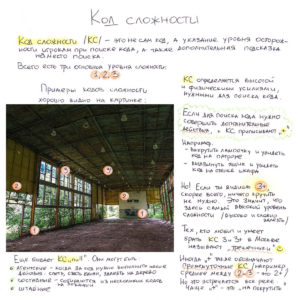 Код сложности
Код сложности /КС/ - это не сам код, а указание уровня осторож-
ности игрокам при поиске кода, а также дополнительная подсказка
на место поиска.
Всего есть три основных уровня сложности:
1, 2, 3
Примеры кодов сложности
хорошо видно на картинке:
КС определяется высотой
и физическими усилиями,
нужными для поиска кода
Если для поиска кода нужно
совершить дополнительные
действия, к КС приписывают "+"
Например:
- выкрутить лампочку и увидеть
код на патроне
- выдвинуть ящик и увидеть
код на стенке шкафа
Но! Если ты видишь 3+,
скорее всего, ничего крутить
не нужно. Это значит, что
здесь самый высокий уровень
сложности /высоко и сложно
залезть/
Тех, кто любит и умеет
брать КС 3 и 3+ в Москве
называют
Иногда "+" также обозначают
промежуточные КС /например
среднее между 2 и 3 - это 2+/
Но это встречается все реже
и чаще "+" - на покрутить
1
2
3
1
2
3
Еще бывает КС "null". Они могут быть
агентские - когда за код нужно выполнить некое
задание: сшить, связать, залезть на дерево
составные - собираются из нескольких кодов
штабные